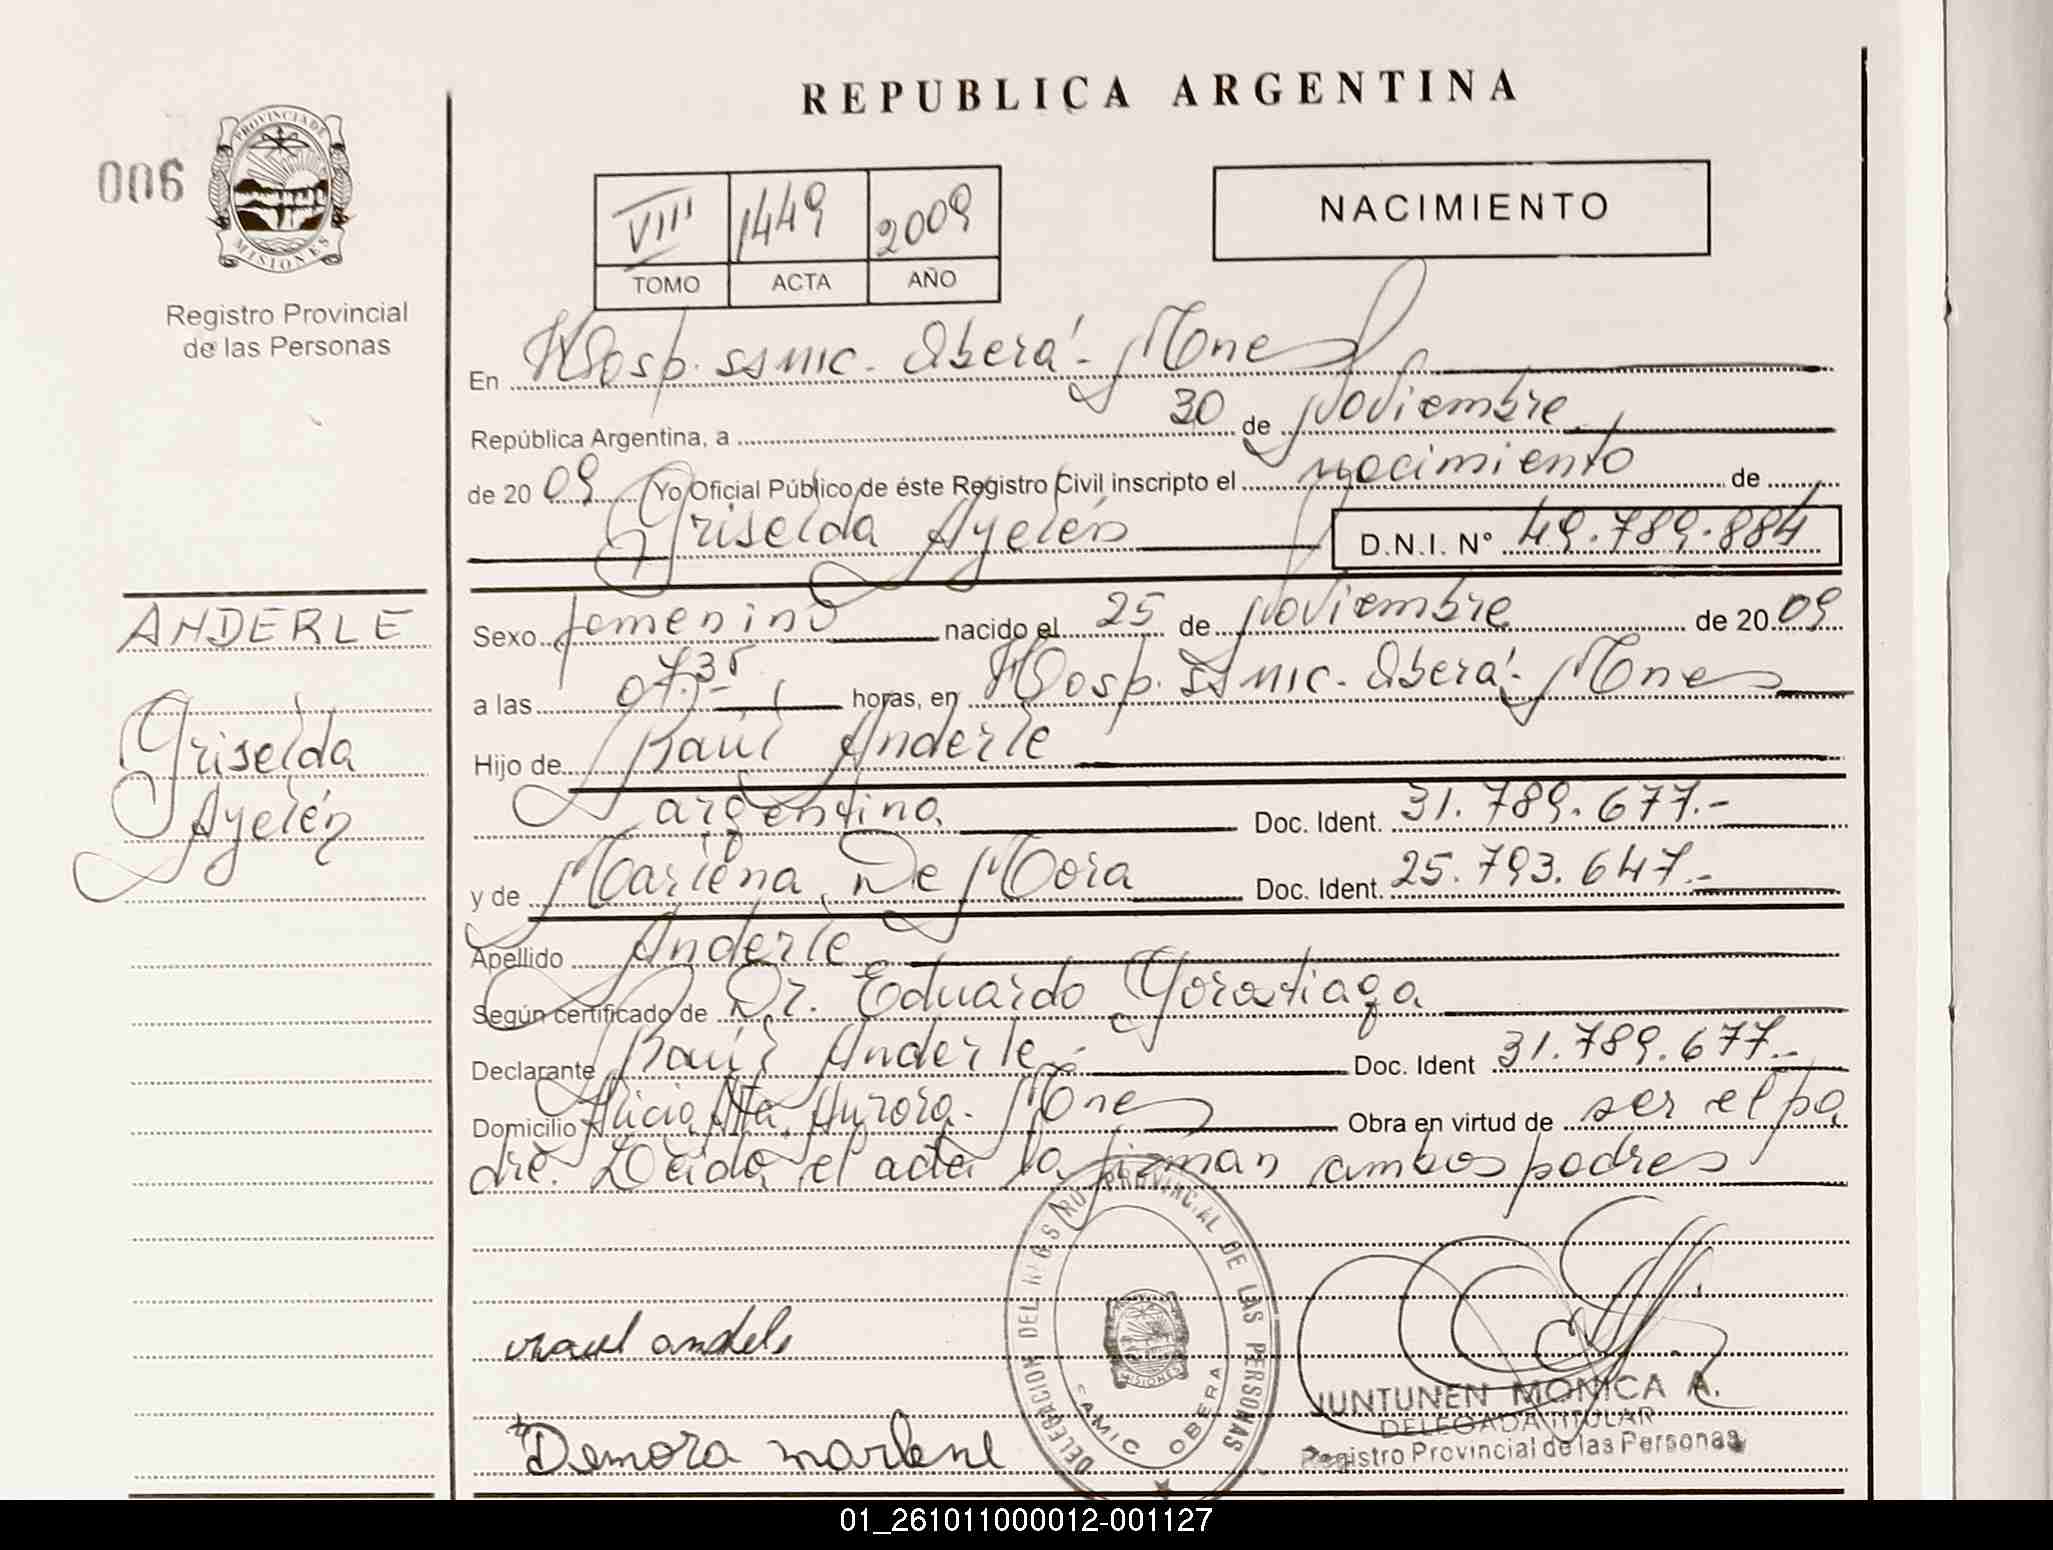 REPUBLICA ARGENTINA
006
PROVINCIA DE
MISIONES
Registro Provincial
de las Personas
VIII 1449 2009
TOMO ACTA AÑO
NACIMIENTO
En Hosp. SAMIC. Oberá - Mnes
República Argentina, a 30 de Noviembre
de 20 09 Yo Oficial Público de éste Registro Civil inscripto el nacimiento de
Griselda Ayelén D.N.I. N° 49.789.884
ANDERLE
Griselda
Ayelén
Sexo femenino nacido el 25 de Noviembre de 20 09
a las 07.35 horas, en Hosp. SAMIC. Oberá - Mnes
Hijo de Raúl Anderle
argentino Doc. Ident. 31.789.677.-
y de De Mora Doc. Ident. 25.793.647.-
Apellido Anderle
Según certificado de Dr. Eduardo
Declarante Raúl Anderle.- Doc. Ident 31.789.677.-
Domicilio Alicia Alta, Aurora. Mnes Obra en virtud de ser el pa
dre. Leida el acta la firman ambos padres
DELEGACION DEL REGISTRO PROVINCIAL DE LAS PERSONAS
MISIONES
SAMIC OBERA
raul
Demora marlene
JUNTUNEN MONICA A.
DELEGADA TITULAR
Registro Provincial de las Personas
01_261011000012-001127